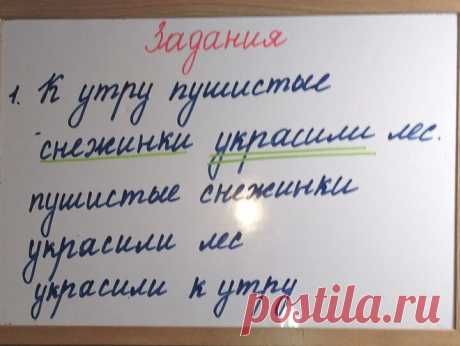 Задания
1. К утру пушистые
снежинки украсили лес.
пушистые снежинки
украсили лес
украсили к утру
postila.ru